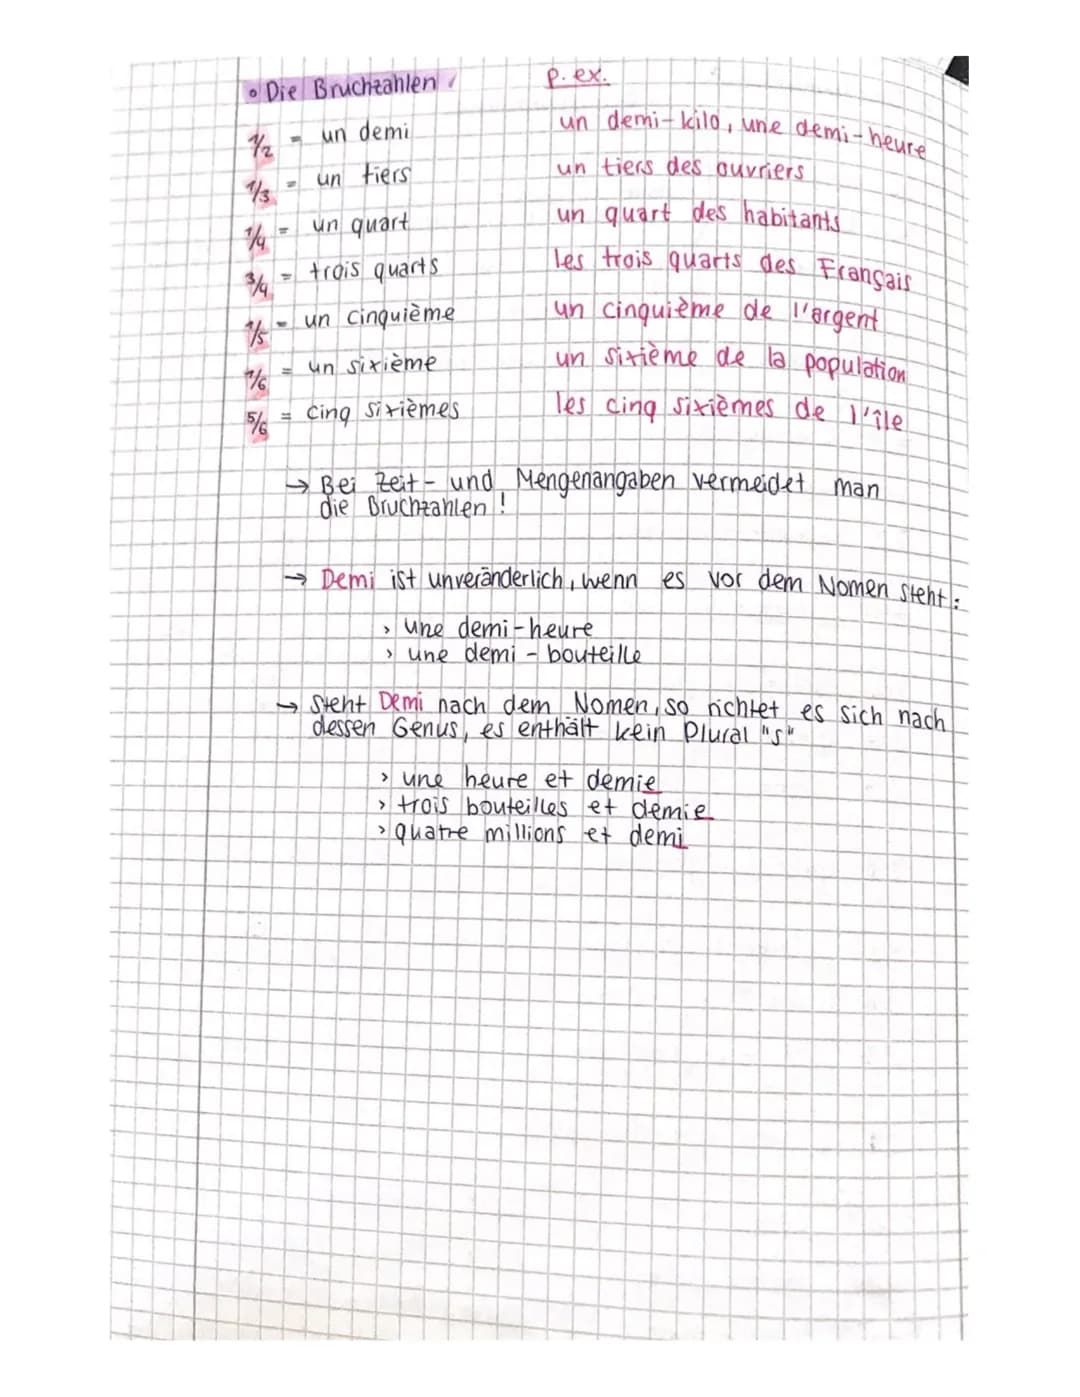 • Die Bruchzahlen p. ex.
1/2 = un demi un demi-kilo, une demi-heure
1/3 = un tiers un tiers des ouvriers
1/4 = un quart un quart des habitants
3/4 = trois quarts les trois quarts des Français
1/5 = un cinquième un cinquième de l'argent
1/6 = un sixième un sixième de la population
5/6 = cinq sixièmes les cinq sixièmes de l'île
→ Bei Zeit- und Mengenangaben vermeidet man
die Bruchzahlen!
→ Demi ist unveränderlich, wenn es vor dem Nomen steht:
› une demi-heure
› une demi-bouteille
→ Steht Demi nach dem Nomen, so richtet es sich nach
dessen Genus, es enthält kein Plural "s"
› une heure et demie
› trois bouteilles et demie
› quatre millions et demi